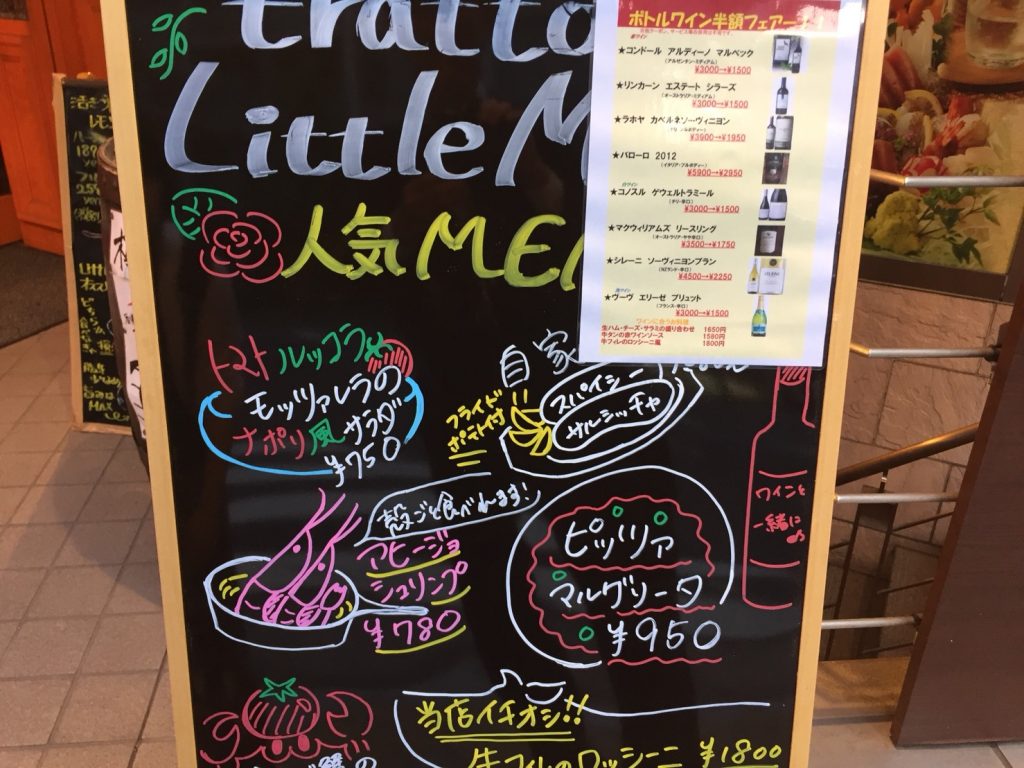 tratto
Little M
人気MEN
トマト ルッコラ
モッツァレラの
ナポリ風サラダ
¥750
自家
フライド
ポテト付
スパイシー
サルシッチャ
殻ごと食べれます!
アヒージョ
シュリンプ
¥780
ピッツァ
マルゲリータ
¥950
ワインと
一緒に♪
当店イチオシ!!
牛フィレのロッシーニ ¥1800
ボトルワイン半額フェアー
赤ワイン
★コンドール アルディーノ マルベック
(アルゼンチン・ミディアム)
¥3000→¥1500
★リンカーン エステート シラーズ
(オーストラリア・ミディアム)
¥3000→¥1500
★ラホヤ カベルネソーヴィニヨン
¥3900→¥1950
★バローロ 2012
(イタリア・フルボディー)
¥5900→¥2950
白ワイン
★コノスル ゲヴェルトラミール
(チリ・辛口)
¥3000→¥1500
★マクウィリアムズ リースリング
(オーストラリア・やや辛口)
¥3500→¥1750
★シレーニ ソーヴィニヨンブラン
(NZランド・辛口)
¥4500→¥2250
★ヴーヴ エリーゼ ブリュット
(フランス・辛口)
¥3000→¥1500
ワインに合うお料理
生ハム・チーズ・サラミの盛り合わせ 1650円
牛タンの赤ワインソース 1580円
牛フィレのロッシーニ風 1800円